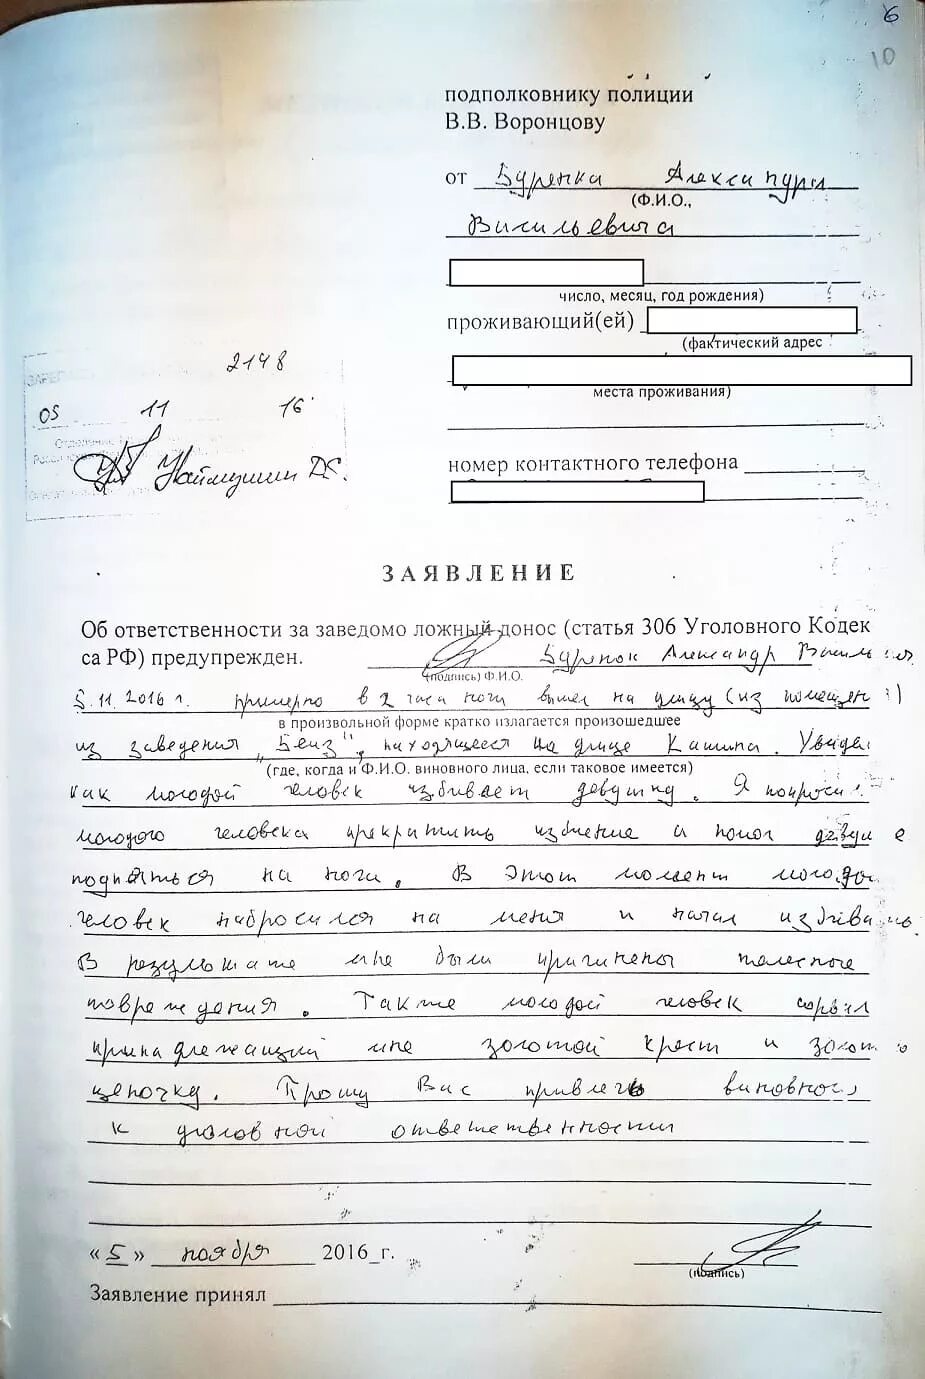 6
10
подполковнику полиции
В.В. Воронцову
от Буренка Александра
(Ф.И.О.,
Васильевича
число, месяц, год рождения)
проживающий(ей)
(фактический адрес
места проживания)
2148
05 11 16
номер контактного телефона
ЗАЯВЛЕНИЕ
Об ответственности за заведомо ложный донос (статья 306 Уголовного Кодек
са РФ) предупрежден. Буренок Александр Василь
(подпись) Ф.И.О.
5.11.2016 г. примерно в 2 часа ночи вышел на улицу (из помещен
в произвольной форме кратко излагается произошедшее
из заведения „Бенз", находящееся на улице Кашина. Увидел
(где, когда и Ф.И.О. виновного лица, если таковое имеется)
как молодой человек избивает девушку. Я попросил
молодого человека прекратить избиение и помог девушке
подняться на ноги. В этот момент молодой
человек набросился на меня и начал избивать.
В результате мне были причинены телесные
повреждения. Также молодой человек сорвал
принадлежащий мне золотой крест и золотую
цепочку. Прошу Вас привлечь виновного
к уголовной ответственности
« 5 » ноября 2016_г.
(подпись)
Заявление принял